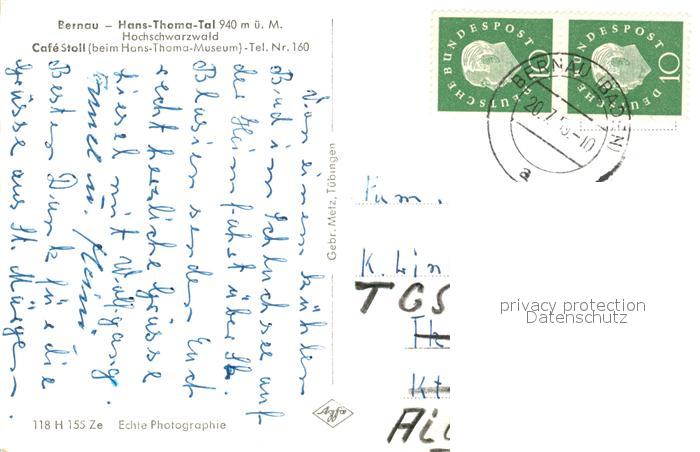 Bernau – Hans-Thoma-Tal 940 m ü. M.
Hochschwarzwald
Café Stoll (beim Hans-Thoma-Museum) - Tel. Nr. 160
Von einem kühlen
Bad im Schluchsee auf
der Heimfahrt über St.
Blasien senden Euch
recht herzliche Grüsse
Liesel mit Wolfgang.
Besten Dank für die
Grüsse aus St. Märgen.
118 H 155 Ze Echte Photographie
Gebr. Metz, Tübingen
Agfa
DEUTSCHE BUNDESPOST
10
DEUTSCHE BUNDESPOST
10
BERNAU (BADEN)
a
Fam.
K. Lin
TGS
Kt
privacy protection
Datenschutz